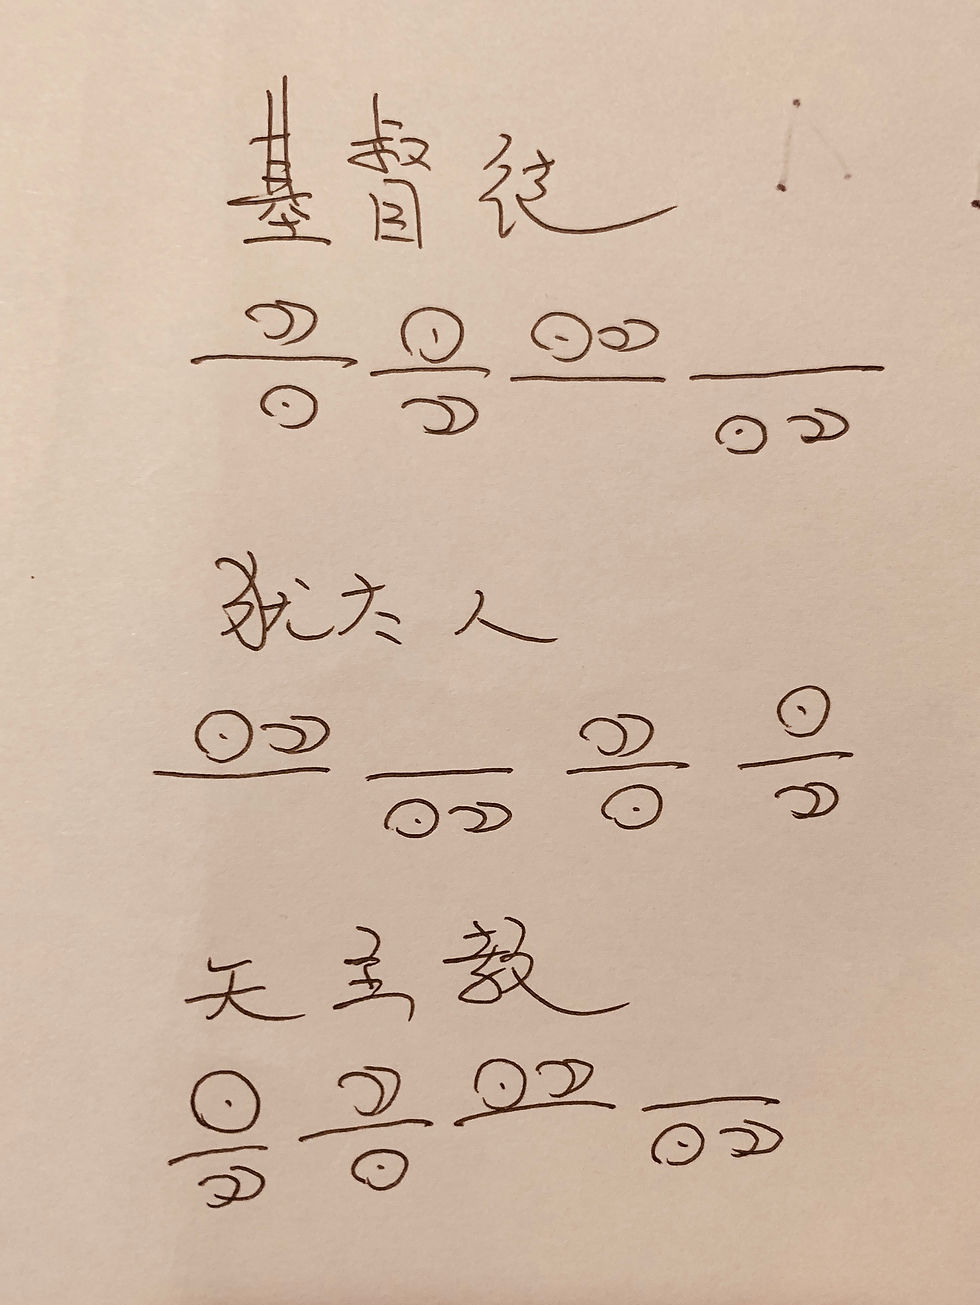 基督徒
犹太人
天主教